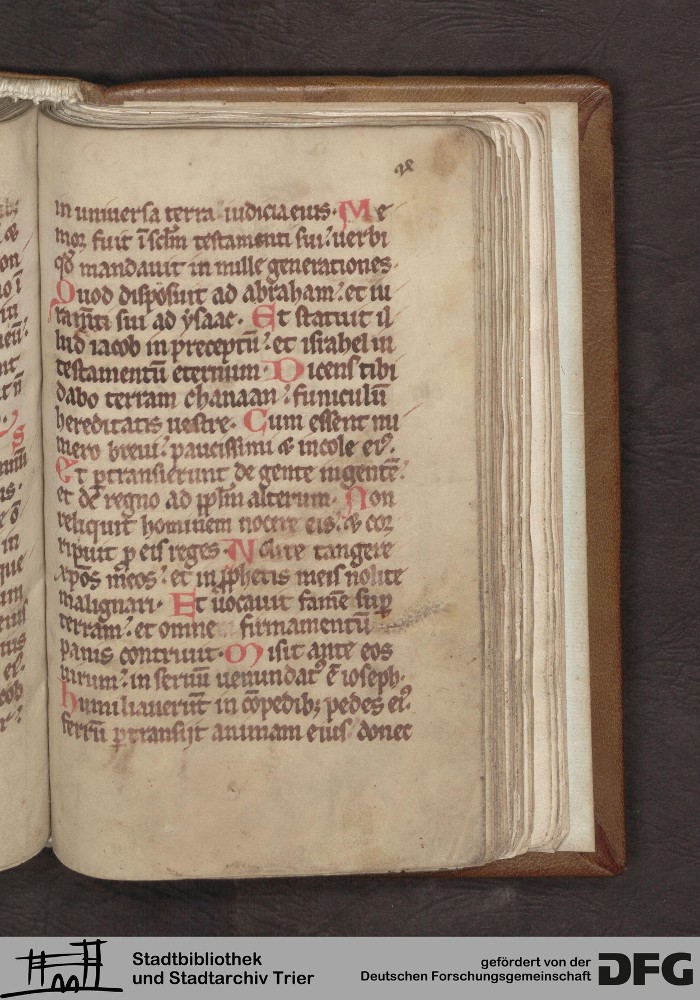 in uniuersa terra iudicia eius· Me
mor fuit ī sclm̄ testamenti sui: uerbi
qd̄ mandauit in mille generationes·
Quod disposuit ad abraham: et iu
ramn̄ti sui ad ysaac· Et statuit il
lud iacob in preceptū: et israhel in
testamentū eternum· Dicens tibi
dabo terram chanaan: funiculū
hereditatis uestre· Cum essent nu
mero breui: paucissimi & incole eiꝰ·
Et ꝑtransierunt de gente in gentē:
et de regno ad ppl̄m alterum· Non
reliquit hominem nocere eis: & cor
ripuit ꝓ eis reges· Nolite tangere
xpōs meos: et in ꝓphetis meis nolite
malignari· Et uocauit famē suꝑ
terram: et omne firmamentū
panis contriuit· Misit ante eos
uirum: in seruū uenundatꝰ ē ioseph·
Humiliauerūt in cōpedibꝫ pedes eiꝰ·
ferrū ꝑtransijt animam eius donec
Stadtbibliothek
und Stadtarchiv Trier
gefördert von der
Deutschen Forschungsgemeinschaft
DFG